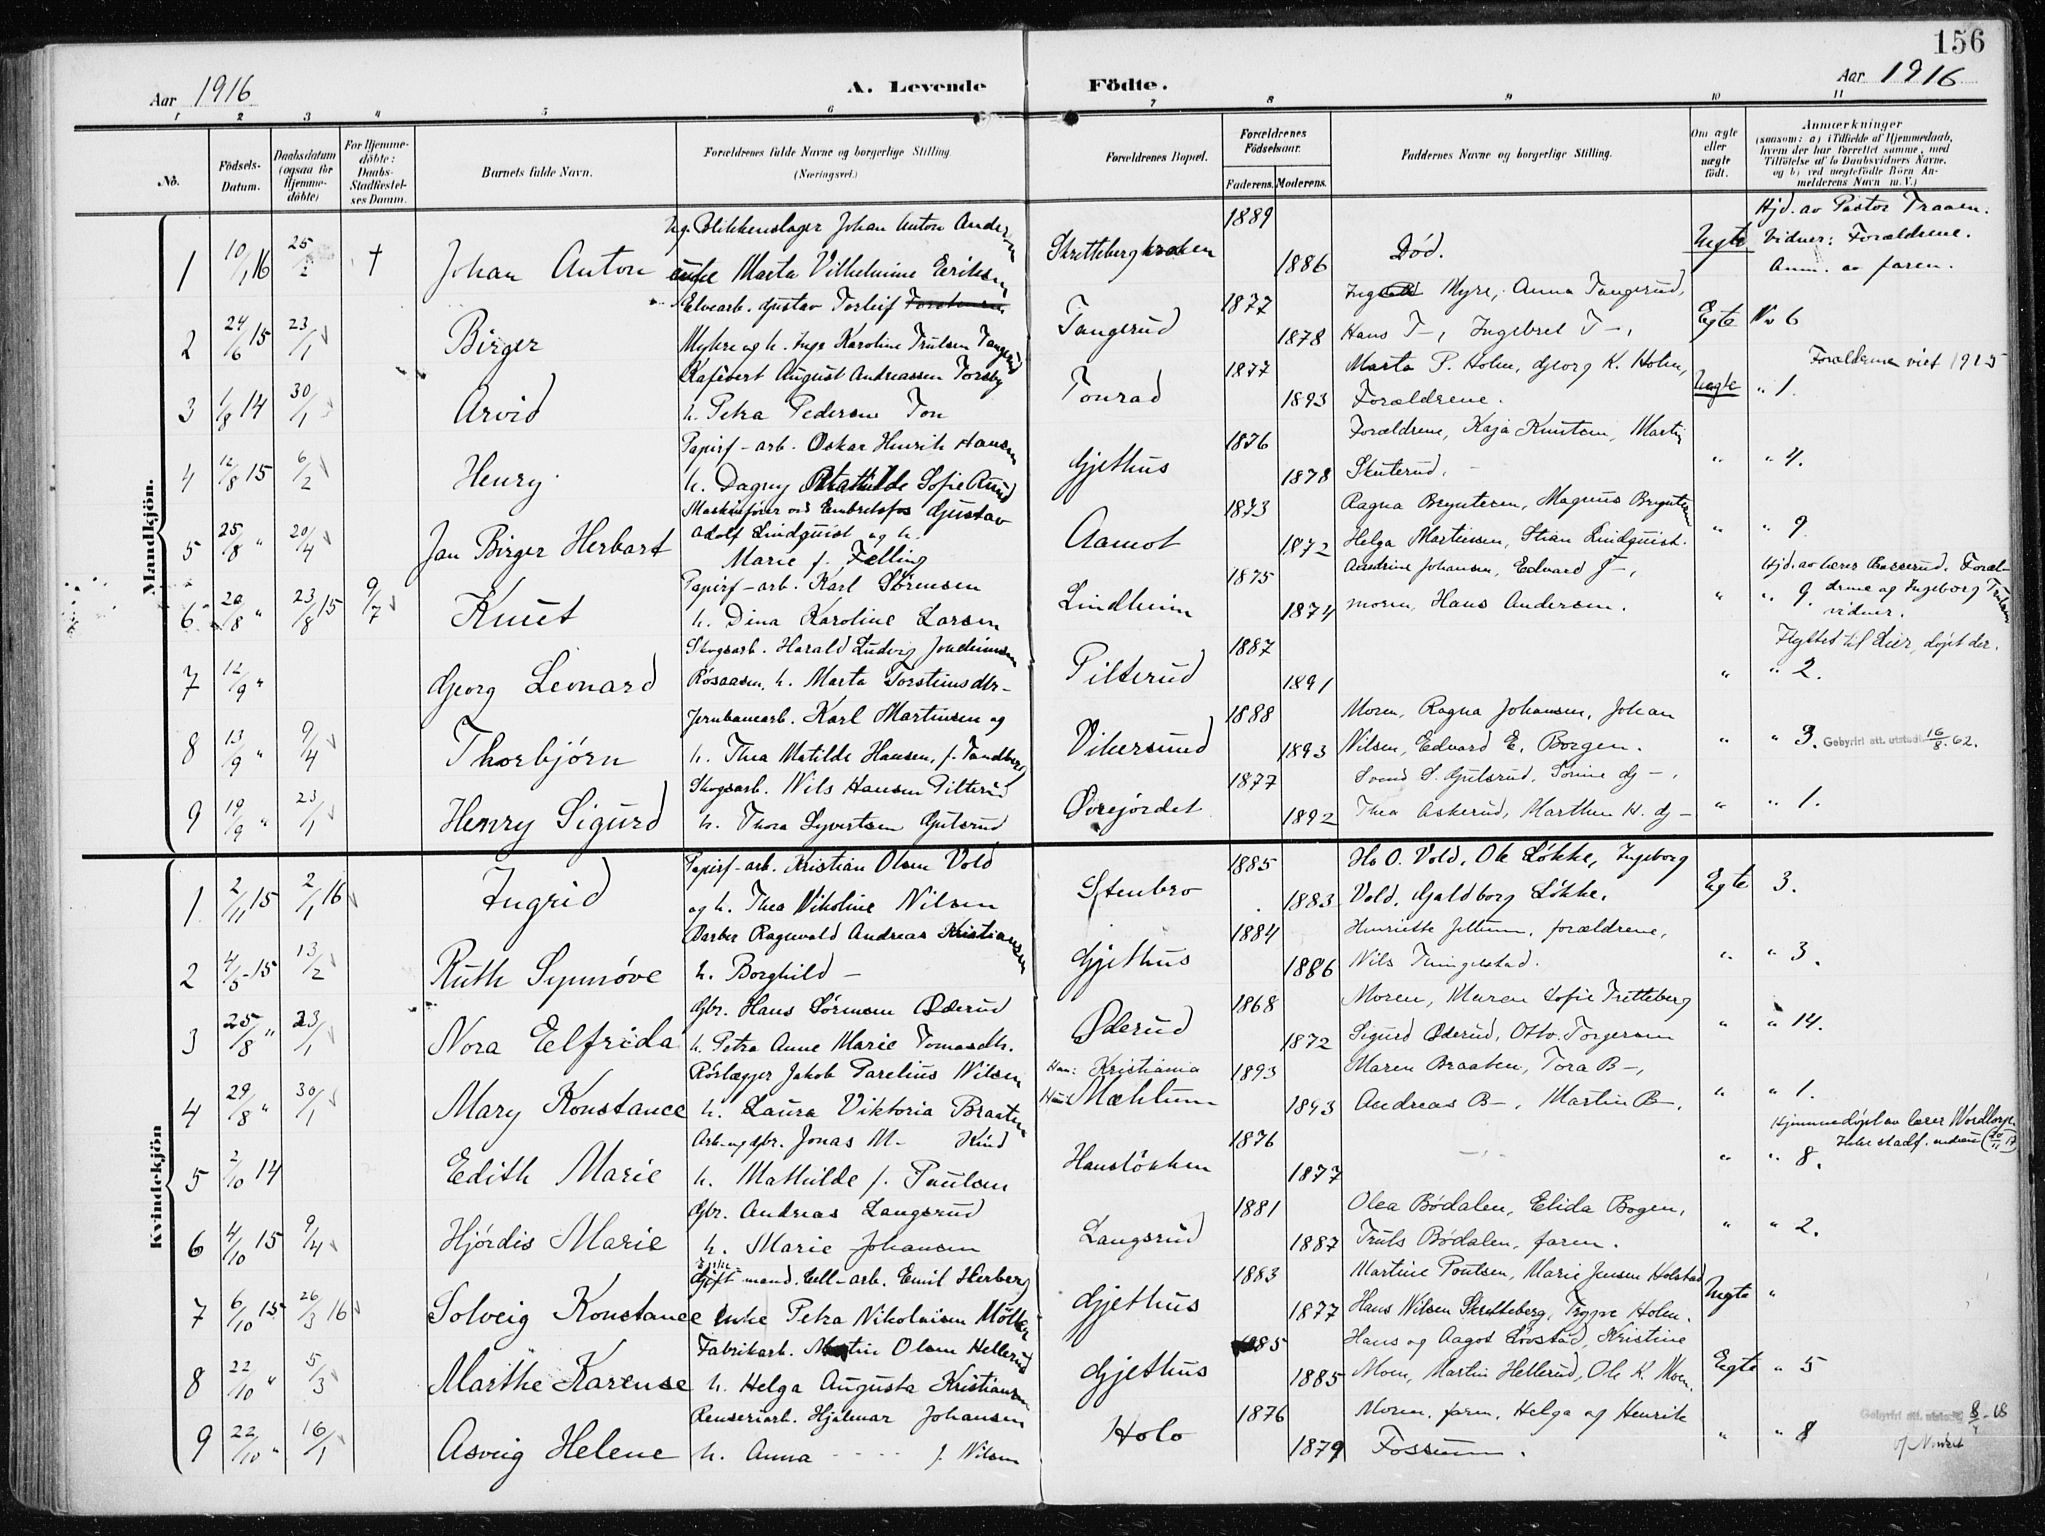 156
Aar 1916
A. Levende Födte.
Aar 1916
1 2 3 4 5 6 7 8 9 10 11
No.
Födsels-Datum.
Daabsdatum (ogsaa for Hjemme-döbte)
For Hjemme-döbte: Daabs-Stadfæstel-ses Datum.
Barnets fulde Navn.
Forældrenes fulde Navne og borgerlige Stilling. (Næringsvei.)
Forældrenes Bopæl.
Forældrenes Födselsaar.
Faderens. Moderens.
Faddernes Navne og borgerlige Stilling.
Om ægte eller uægte födt.
Anmærkninger (saasom: a) i Tilfælde af Hjemmedaab, hvem der har forrettet samme, med Tilföielse af to Daabsvidners Navne, og b) ved uægtefödte Börn Anmelderens Navn m. V.)
Mandkjön.
1 10/1 16 25/2 † Johan Anton
Ug. Blikkenslager Johan Anton Andersen
enke Marta Vilhelmine Eriksen
Skrettebergbraaten 1889 1886 Død. Uegte
Hjd. av Pastor Traaen.
Vidner: Forældrene.
Anm. av faren.
2 24/6 15 23/1 Birger
Elvearb. Gustav Torleif
Myhre og h. Inga Karoline Trulsen Tangerud
Tangerud 1877 1878
Myre, Anna Tangerud,
Hans T-, Ingebret T-,
Egte No 6
3 1/8 14 30/1 Arvid
August Andreassen Torsby
h. Petra Pedersen Ton
Tonrad 1877 1893
Marta P. Holm, Georg K. Holm,
Forældrene.
Uegte " 1.
Forældrene viet 1915
4 12/8 15 6/2 Henry
Papirf-arb. Oskar Henrik Hansen
h. Dagny Mathilde Sofie Ruud
Gjethus 1876 1878
Forældrene, Kaja Knutsen, Martin
Skuterud.
" " 4.
5 25/8 " 20/4 Jan Birger Herbart
Maskinfører ved Embretsfos Gustav
Adolf Lindquist og h.
Marie f. Felling
Aamot 1873 1872
Ragna Bryntesen, Magnus Bryntesen
Helga Martinsen, Stian Lindquist.
" " 9.
6 20/8 " 23/8 15 9/7 Knut
Papirf-arb. Karl Sørensen
h. Dina Karoline Larsen
Lindheim 1875 1874
Andrine Johansen, Edvard J-,
moren, Hans Andersen.
" " 9.
Hjd. av lærer Forældrene og Ingeborg Trulsen vidner.
7 12/9 " Georg Leonard
Skogsarb. Harald Ludvig Joachimsen
Røsaasen, h. Marta Torsteinsdtr-
Pilterud 1887 1891
" " 2.
Flyttet til Lier, døpt der.
8 13/9 " 9/4 Thorbjörn
Jernbanearb. Karl Martinsen og
h. Thea Matilde Hansen, f. Tandberg
Vikersund 1888 1893
Moren, Ragna Johansen, Johan
Nilsen, Edvard E. Borgen.
" " 3. Gebyrfri att. utstedt 16/8.62.
9 19/9 " 23/1 Henry Sigurd
Skogsarb. Nils Hansen Pilterud
h. Thora Syvertsen Gulsrud
Ørejordet 1877 1892
Svend S. Gulsrud, Sorine G-,
Thea Askerud, Marthin H. G-
" " 1.
Kvindekjön
1 2/11 15 2/1 16 Ingrid
Papirf-arb. Kristian Olsen Vold
og h. Thea Nikoline Nilsen
Stenbro 1885 1883
H. O. Vold, Ole Løkke, Ingeborg
Vold, Galdborg Løkke.
Egte 3.
2 4/5 15 13/2 Ruth Synnöve
Barber Ragnvald Andreas Kristiansen
h. Borghild -
Gjethus 1884 1886
Henriette Jellum, forældrene,
Nils Tingelstad.
" " 3.
3 25/8 " 23/1 Nora Elfrida
Gbr. Hans Sörensen Øderud
h. Petra Anne Marie Tomasdtr.
Øderud 1868 1872
Moren, Maren Sofie Tretteberg
Sigurd Øderud, Otto Torgersen
" " 14.
4 29/8 " 30/1 Mary Konstance
Rörlægger Jakob Parelius Nilsen
h. Laura Viktoria Braaten
Han: Kristiania
Hun: Mæhlum
1893 1893
Maren Braaten, Tora B-,
Andreas B-, Martin B-,
" " 1.
5 2/10 14 Edith Marie
Arb. og gbr. Jonas M. Kind
h. Mathilde f. Paulsen
Hanslökken 1876 1877
" " 8.
Hjemmedøpt av lærer Nordtorp.
Ikke stadf.
6 4/10 15 9/4 Hjördis Marie
Gbr. Andreas Langsrud
h. Marie Johansen
Langsrud 1881 1887
Olea Bødalen, Elida Bogen,
Truls Bødalen, faren.
" " 2.
7 6/10 15 26/3 16 Solveig Konstance
Gift mand. Cell-arb. Emil Herberg
enke Petra Nikolaisen Möller
Gjethus 1883 1877
Martine Poulsen, Marie Jensen Holstad
Hans Nilsen Skretteberg, Trygve Holm.
Uegte "
8 22/10 " 5/3 Marthe Karense
Fabrikarb. Martin Olsen Hellerud
h. Helga Augusta Kristiansen
Gjethus 1885 1885
Hans og Aagot Lövstad, Kristine
Moen, Martin Hellerud, Ole K. Moen.
Egte " 5
9 22/10 " 16/1 Asveig Helene
Renseriarb. Hjalmar Johansen
h. Anna - - - - f. Nilsen
Holo 1876 1879
Moren, faren, Helga og Henrik
Fossum.
" " 8
Gebyrfri att. utstedt